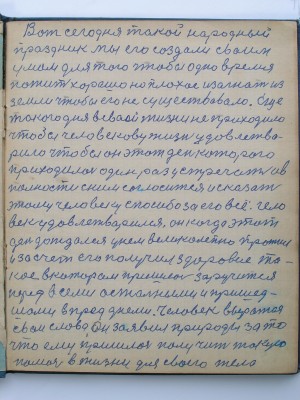 Вот сегодня такой народный
праздник мы его создали своим
умом для того чтобы одно время
пожит хорашо но плохое изагнат из
земли чтобы его не существовало. Еще
такого дня в етой жизни не приходило
чтобы человеку жизн удовлетво-
рило чтобы он этот ден которого
приходилос один, раз устретит и в
полности с ним согласится и сказат
этому человеку спасибо за его всё. Чело
век удовлетварился, он когда этот
ден дождался и нем великолепно прожил
и за счет его получил здоровие та-
кое, в котором пришлос заручится
перед всеми остальными и пришед-
шими впред днями. Человек
свои слова Он заявил природы за то
что ему пришлос получит такую
помоч в жизни для своего тела